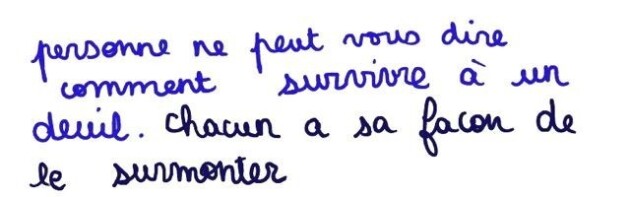 personne ne peut vous dire
comment survivre à un
deuil. Chacun a sa facon de
le surmonter